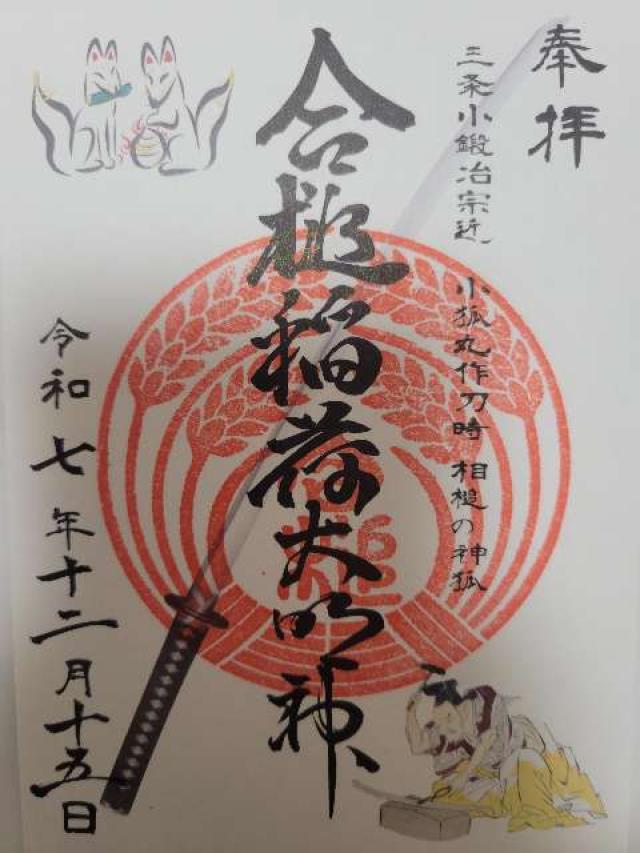 奉拝
三条小鍛冶宗近 小狐丸作刀時 相槌の神狐
合槌稲荷大明神
令和七年十二月十五日